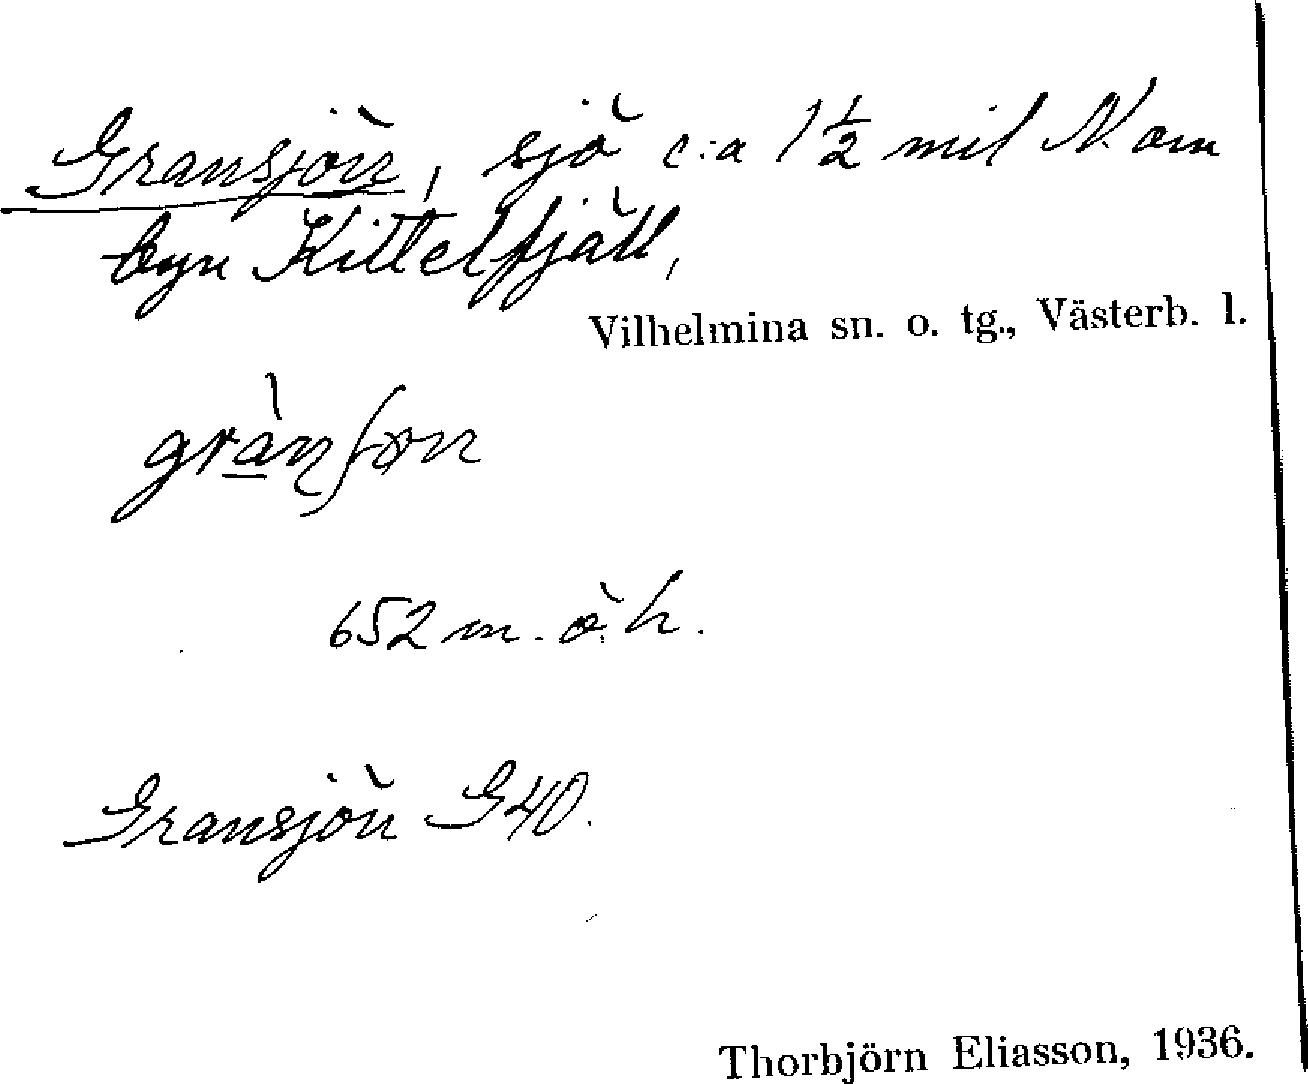 Gransjön, sjö c:a 1 ½ mil N. om
byn Kittelfjäll,
Vilhelmina sn. o. tg., Västerb. l.
652 m. ö. h.
Gransjön G40.
Thorbjörn Eliasson, 1936.